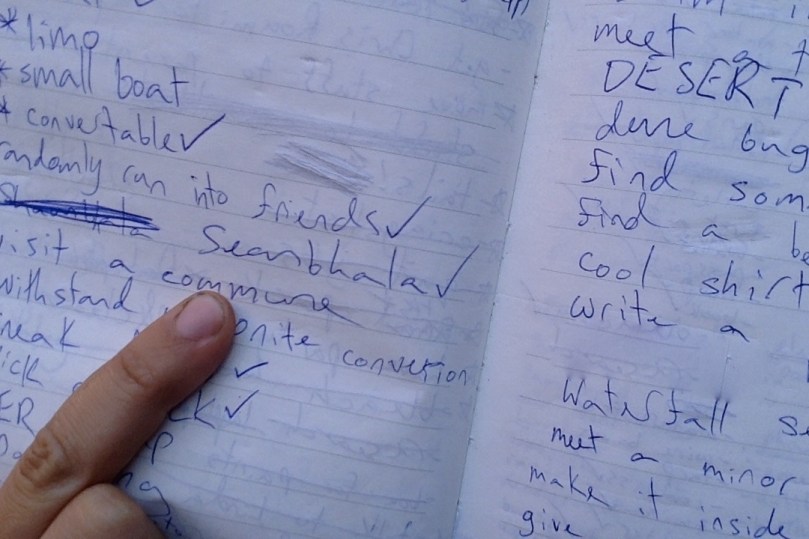 * limo
* small boat
* convertable ✓
randomly run into friends ✓
Seanbhala ✓
visit a commune
withstand
onite convertion
✓
ER CK ✓
meet
DESERT
dune bug
find som
find a be
cool shirt
write a
Waterfall se
meet a minor
make it inside
give